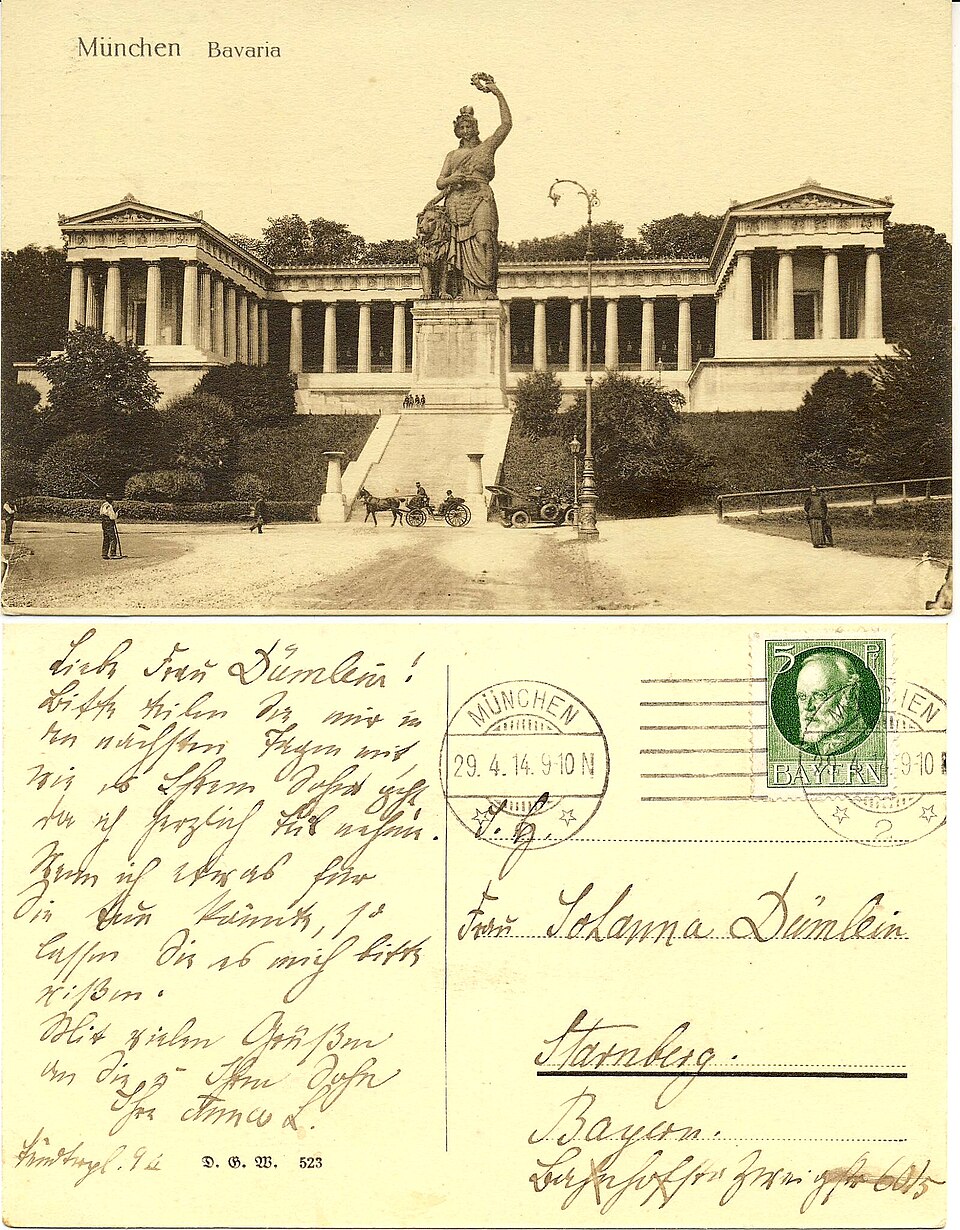 München Bavaria
Liebe Frau Dümlein!
Bitte teilen Sie mir in
den nächsten Tagen mit,
wie es Ihrem Sohn geht,
da ich herzlich teil nehme.
Wenn ich etwas für
Sie tun könnte, so
lassen Sie es mich bitte
wißen.
Mit vielen Grüßen
an Sie u Ihren Sohn
Ihre L.
D. G. W. 523
MÜNCHEN
29.4.14. 9-10 N
2
5 P
BAYERN
9-10
2
Frau Johanna Dümlein
Starnberg.
Bayern.